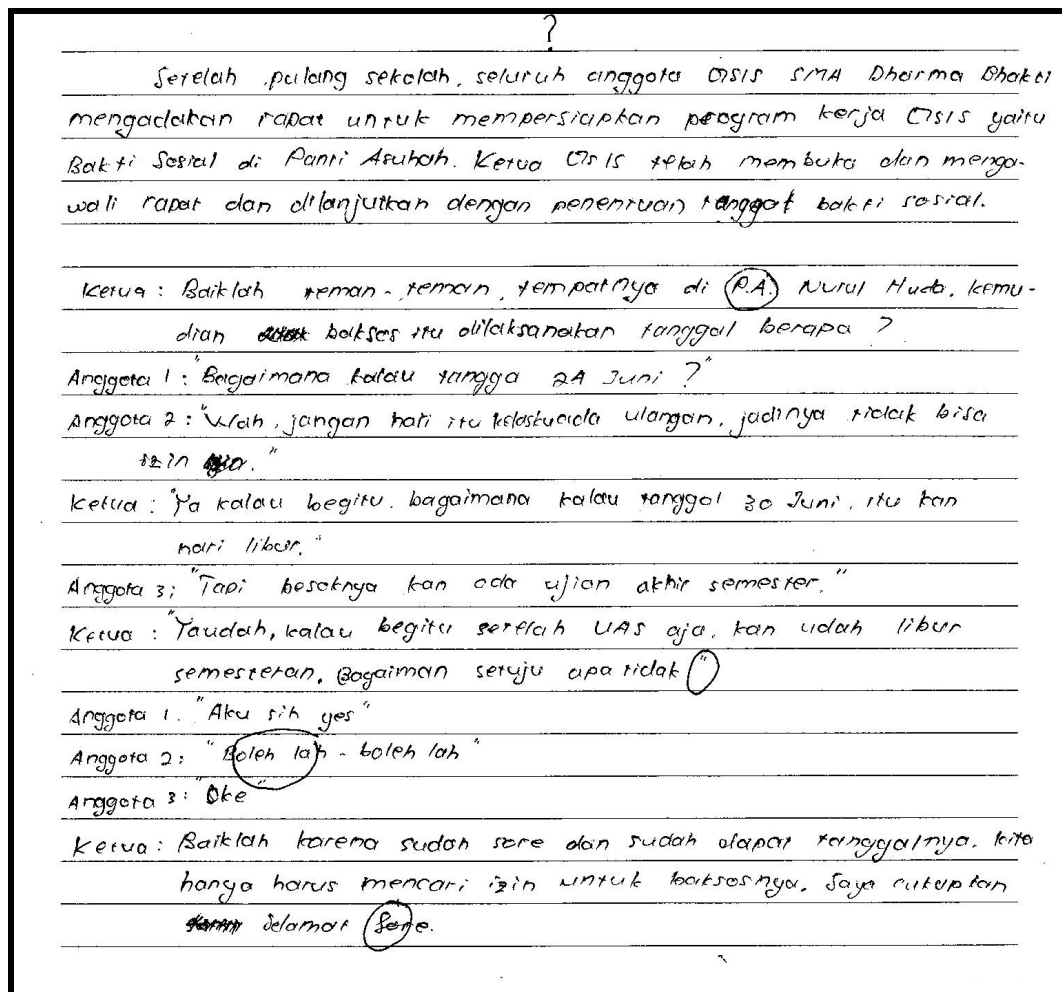 ?
Setelah pulang sekolah, seluruh anggota OSIS SMA Dharma Bhakti
mengadakan rapat untuk mempersiapkan program kerja OSIS yaitu
Bakti Sosial di Panti Asuhah. Ketua OSIS telah membuka dan menga-
wali rapat dan dilanjutkan dengan penentuan tanggat bakti sosial.
Ketua : Baiklah teman-teman, tempatnya di P.A. Nurul Huda, kemu-
dian baksos itu dilaksanakan tanggal berapa ?
Anggota 1 : "Bagaimana kalau tangga 24 Juni ?"
Anggota 2 : "Wah, jangan hari itu kelasku ada ulangan, jadinya tidak bisa
izin."
Ketua : "Ya kalau begitu. bagaimana kalau tanggal 30 Juni, itu kan
hari libur."
Anggota 3; "Tapi besoknya kan ada ujian akhir semester."
Ketua : "Yaudah, kalau begitu setelah UAS aja, kan udah libur
semesteran. Bagaiman setuju apa tidak"
Anggota 1. "Aku sih yes"
Anggota 2; "Boleh lah - boleh lah"
Anggota 3: "Oke"
Ketua: Baiklah karena sudah sore dan sudah dapat tanggalnya. kita
hanya harus mencari izin untuk baksosnya. Saya cutapkan
Selamat Sore.